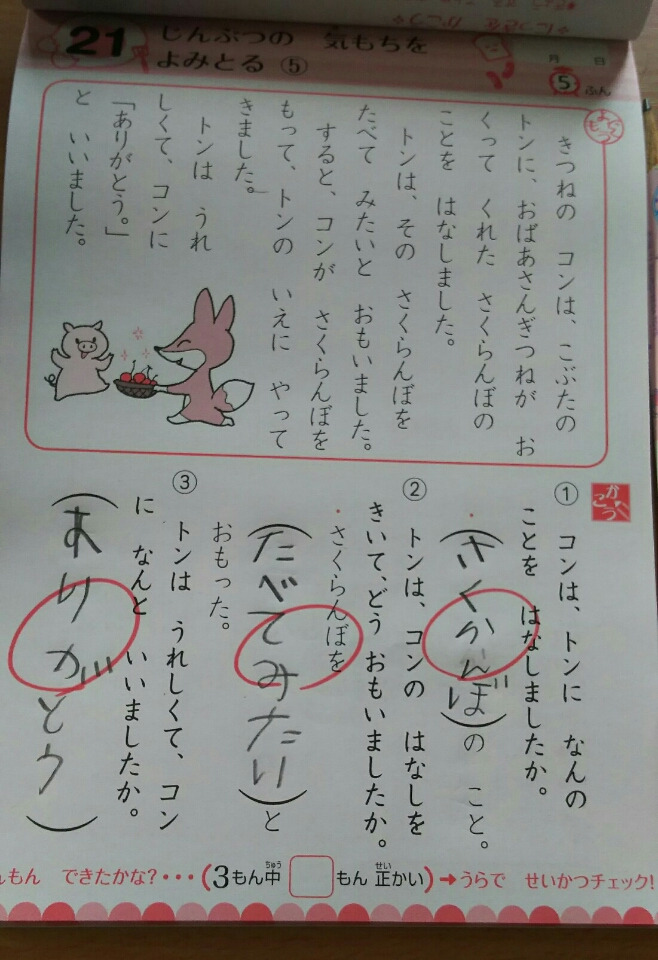 21
じんぶつの 気もちを
よみとる ⑤
月 日
5 ふん
よもう
きつねの コンは、こぶたの
トンに、おばあさんぎつねが お
くって くれた さくらんぼの
ことを はなしました。
トンは、その さくらんぼを
たべて みたいと おもいました。
すると、コンが さくらんぼを
もって、トンの いえに やって
きました。
トンは うれ
しくて、コンに
「ありがとう。」
と いいました。
かこう
① コンは、トンに なんの
ことを はなしましたか。
(さくらんぼ)の こと。
② トンは、コンの はなしを
きいて、どう おもいましたか。
・さくらんぼを
(たべてみたい)と
おもった。
③ トンは うれしくて、コン
に なんと いいましたか。
(ありがとう)
もん できたかな?・・・(3もん中ちゅう もん 正せいかい)→うらで せいかつチェック!